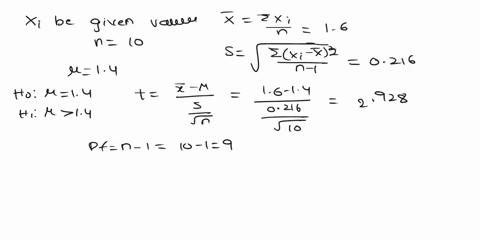 Xi be given value x̄ = Σxi/n = 1.6
n = 10
S = √(Σ(xi-x̄)²/(n-1)) = 0.216
μ = 1.4
H0: μ = 1.4
H1: μ > 1.4
t = (x̄-μ)/(S/√n) = (1.6-1.4)/(0.216/√10) = 2.928
Df = n-1 = 10-1 = 9